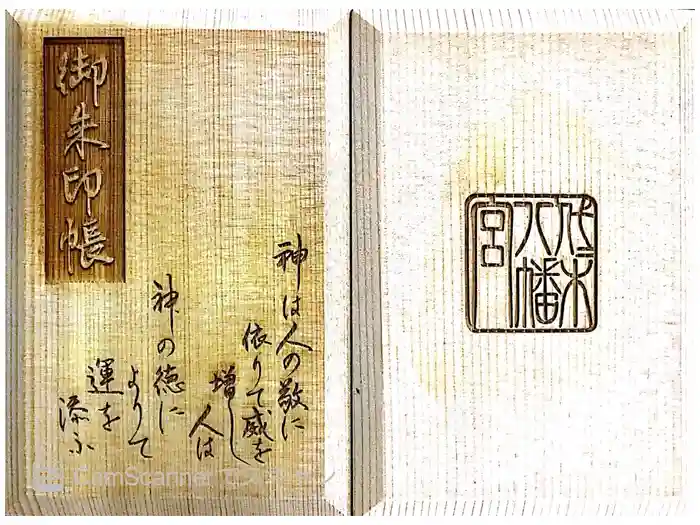 御朱印帳
神は人の敬に
依りて威を
増し
人は
神の徳に
よりて
運を
添ふ
代々木
八幡
宮
CamScanner でスキャン